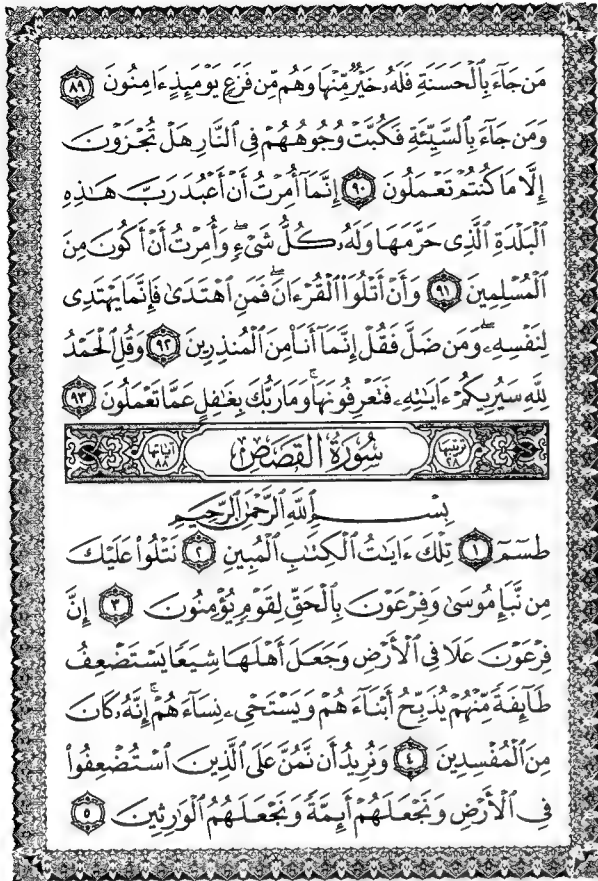 مَن جَآءَ بِٱلْحَسَنَةِ فَلَهُۥ خَيْرٌ مِّنْهَا وَهُم مِّن فَزَعٍ يَوْمَئِذٍ ءَامِنُونَ ٨٩
وَمَن جَآءَ بِٱلسَّيِّئَةِ فَكُبَّتْ وُجُوهُهُمْ فِى ٱلنَّارِ هَلْ تُجْزَوْنَ
إِلَّا مَا كُنتُمْ تَعْمَلُونَ ٩٠ إِنَّمَآ أُمِرْتُ أَنْ أَعْبُدَ رَبَّ هَـٰذِهِ
ٱلْبَلْدَةِ ٱلَّذِى حَرَّمَهَا وَلَهُۥ كُلُّ شَىْءٍ ۖ وَأُمِرْتُ أَنْ أَكُونَ مِنَ
ٱلْمُسْلِمِينَ ٩١ وَأَنْ أَتْلُوَا۟ ٱلْقُرْءَانَ ۖ فَمَنِ ٱهْتَدَىٰ فَإِنَّمَا يَهْتَدِى
لِنَفْسِهِۦ ۖ وَمَن ضَلَّ فَقُلْ إِنَّمَآ أَنَا۠ مِنَ ٱلْمُنذِرِينَ ٩٢ وَقُلِ ٱلْحَمْدُ
لِلَّهِ سَيُرِيكُمْ ءَايَـٰتِهِۦ فَتَعْرِفُونَهَا ۚ وَمَا رَبُّكَ بِغَـٰفِلٍ عَمَّا تَعْمَلُونَ ٩٣
ترتيبها ٢٨ سُورَةُ القَصَصِ آياتها ٨٨
بِسْمِ ٱللَّهِ ٱلرَّحْمَـٰنِ ٱلرَّحِيمِ
طسٓمٓ ١ تِلْكَ ءَايَـٰتُ ٱلْكِتَـٰبِ ٱلْمُبِينِ ٢ نَتْلُوا۟ عَلَيْكَ
مِن نَّبَإِ مُوسَىٰ وَفِرْعَوْنَ بِٱلْحَقِّ لِقَوْمٍ يُؤْمِنُونَ ٣ إِنَّ
فِرْعَوْنَ عَلَا فِى ٱلْأَرْضِ وَجَعَلَ أَهْلَهَا شِيَعًا يَسْتَضْعِفُ
طَآئِفَةً مِّنْهُمْ يُذَبِّحُ أَبْنَآءَهُمْ وَيَسْتَحْىِۦ نِسَآءَهُمْ ۚ إِنَّهُۥ كَانَ
مِنَ ٱلْمُفْسِدِينَ ٤ وَنُرِيدُ أَن نَّمُنَّ عَلَى ٱلَّذِينَ ٱسْتُضْعِفُوا۟
فِى ٱلْأَرْضِ وَنَجْعَلَهُمْ أَئِمَّةً وَنَجْعَلَهُمُ ٱلْوَٰرِثِينَ ٥